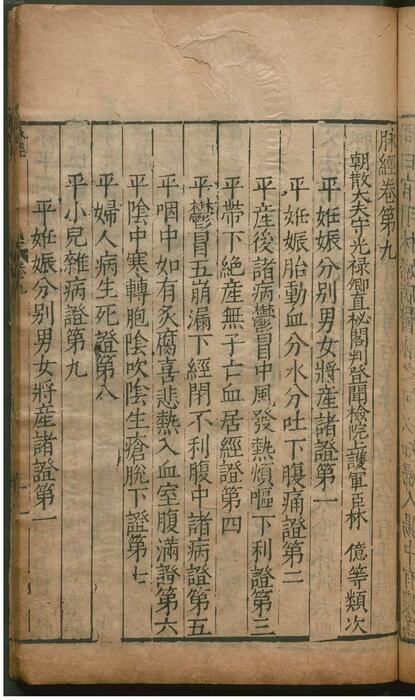 脉經卷第九
朝散大夫守光禄卿直秘閣判登聞檢院上護軍臣林 億等類次
平姙娠分别男女將産諸證第一
平姙娠胎動血分水分吐下腹痛證第二
平産後諸病鬱冒中風發熱煩嘔下利證第三
平帶下絶産無子亡血居經證第四
平鬱冒五崩漏下經閉不利腹中諸病證第五
平咽中如有炙腐喜悲熱入血室腹滿證第六
平陰中寒轉胞陰吹陰生瘡脫下證第七
平婦人病生死證第八
平小兒雜病證第九
平姙娠分别男女將産諸證第一